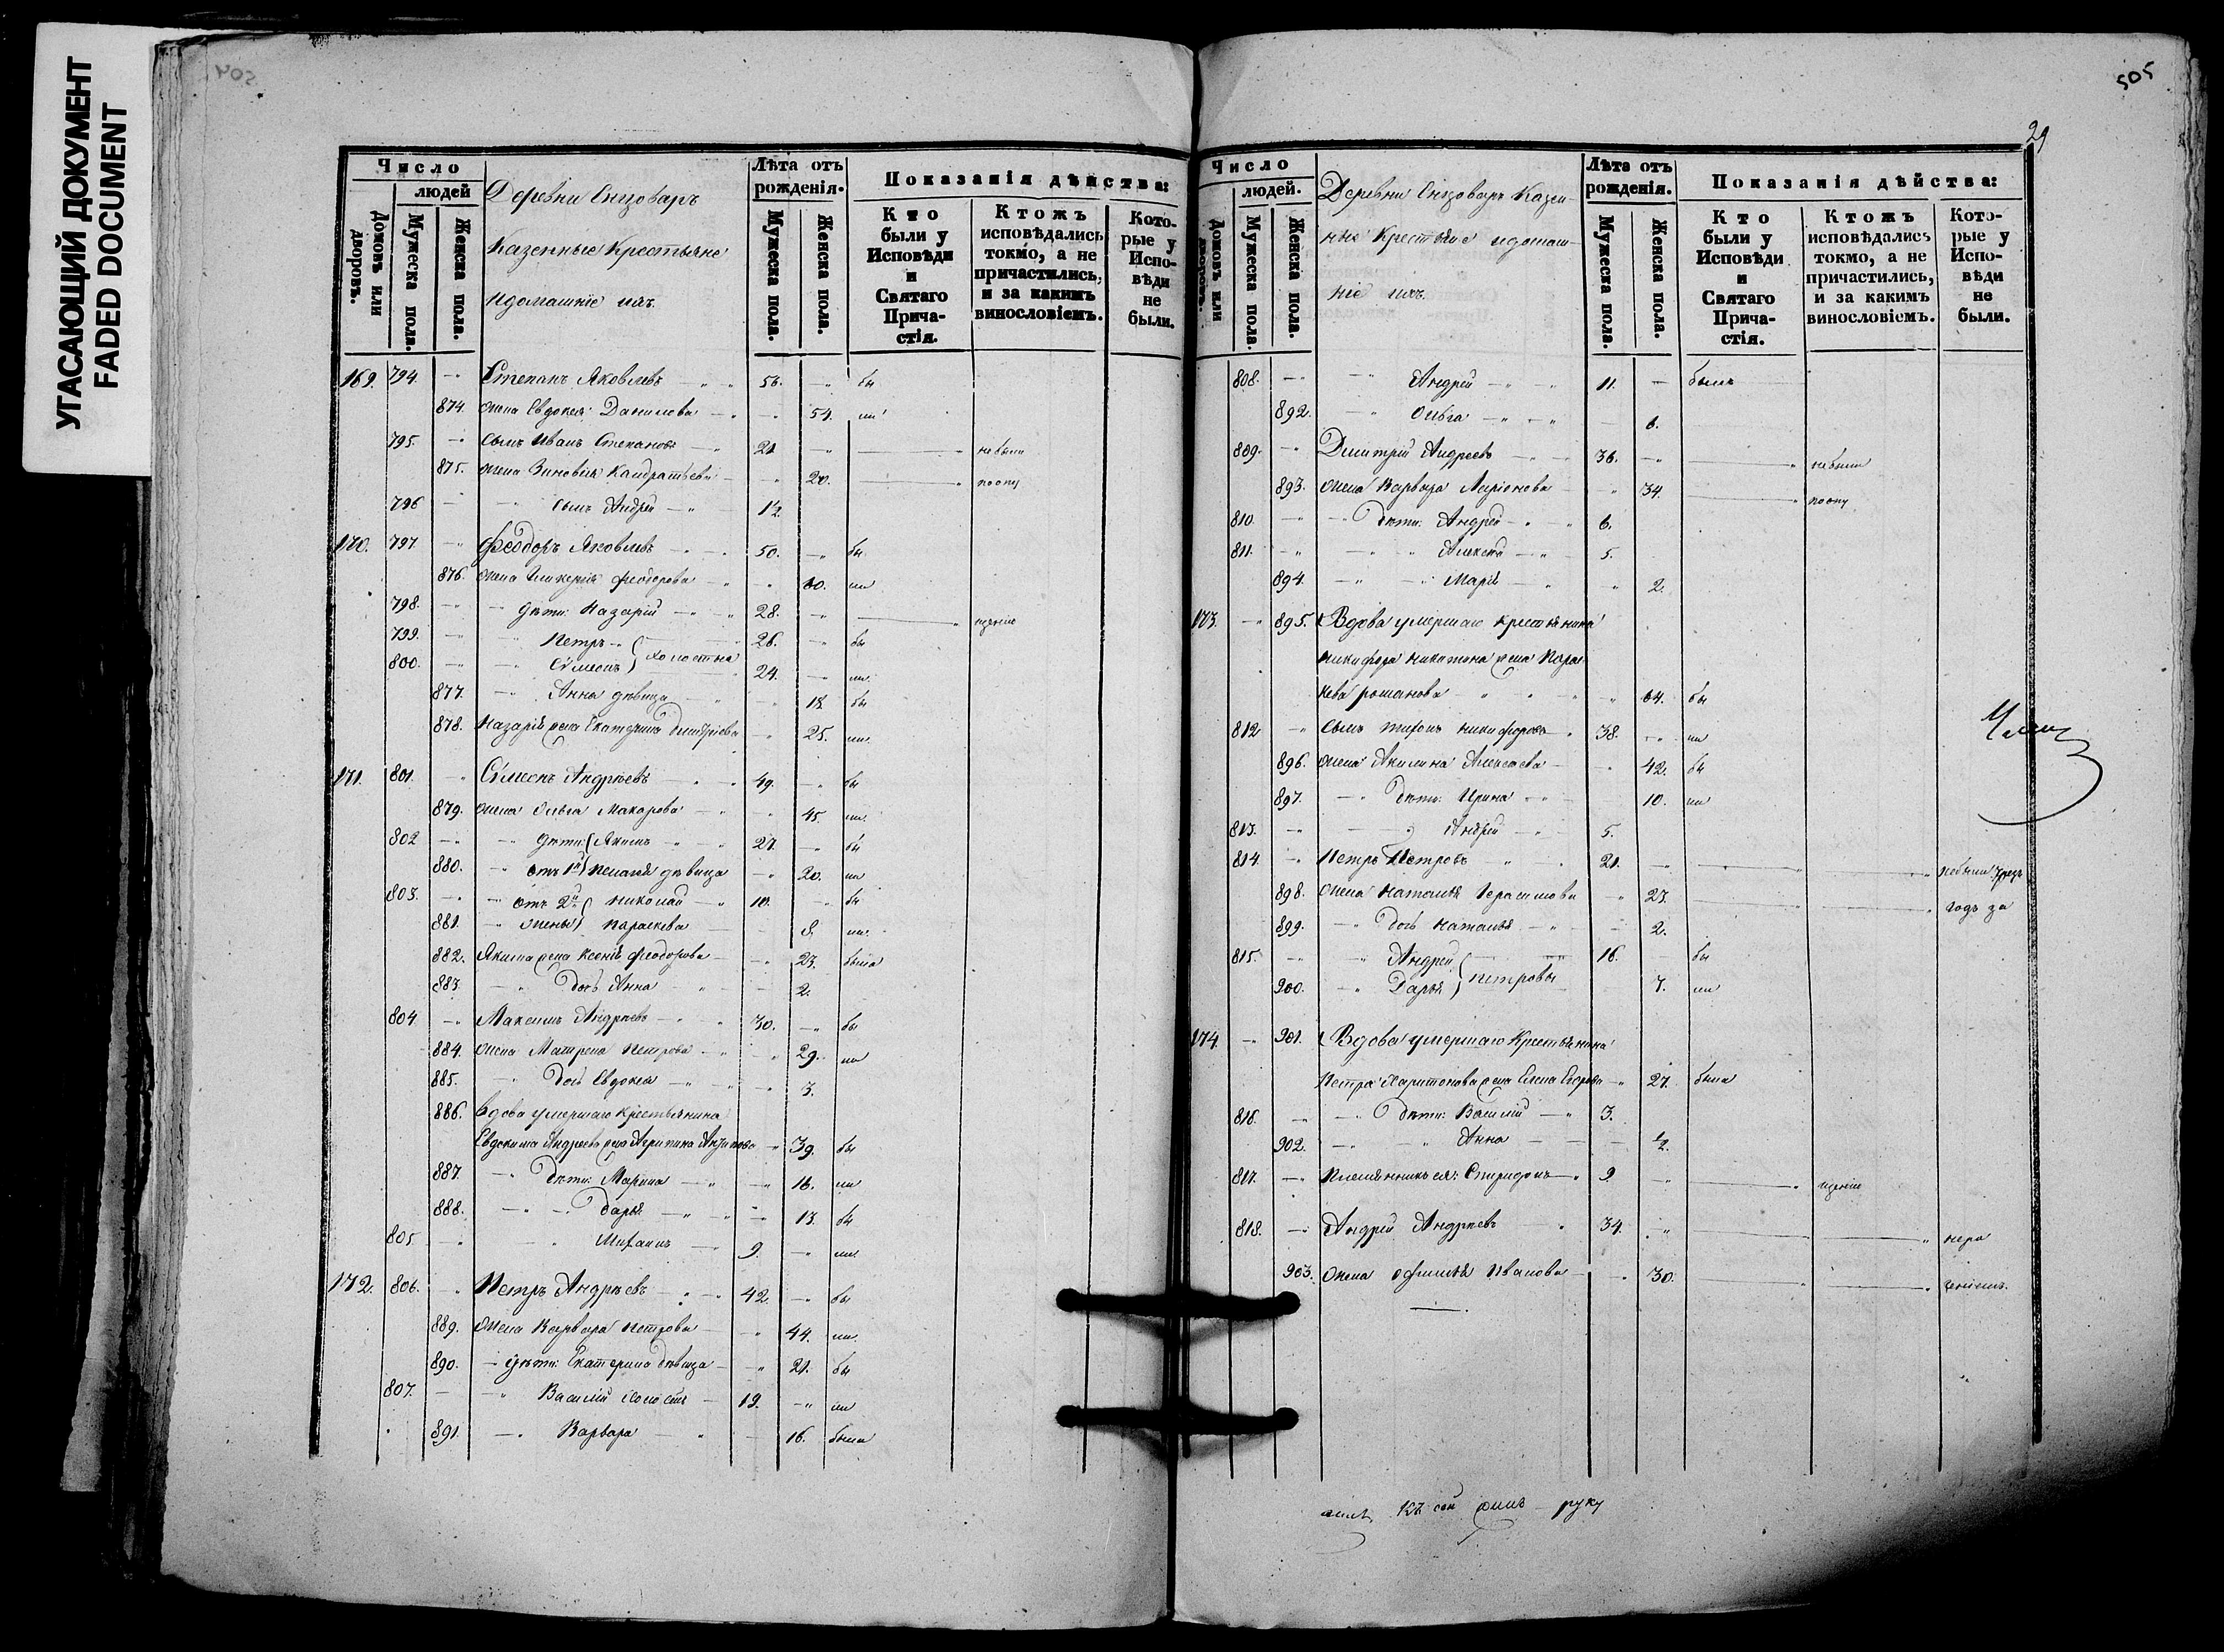 УГАСАЮЩИЙ ДОКУМЕНТ
FADED DOCUMENT
505
29
Число
людей
Домовъ или дворовъ.
Мужеска пола.
Женска пола.
Деревни Ензоваръ
Казенные Крестьяне
и домашніе ихъ.
Лѣта отъ рожденія.
Мужеска пола.
Женска пола.
Показанія дѣйства:
Кто были у Исповѣди и Святаго Причастія.
Ктожъ исповѣдались токмо, а не причастились, и за какимъ винословіемъ.
Которые у Исповѣди не были.
169. 794. Степанъ Яковлевъ 56. бы
874. жена Евдокея Данилова 54. ли
795. сынъ Иванъ Степановъ 21 небыли
875. жена Зиновия Кандратьева 20. поопу
796 сынъ Андрей 1/2
170. 797. Феодоръ Яковлевъ 50. бы
876. жена Гликерія Феодорова 60. ли
798. дѣти: Назарій 28. щеніе
799. Петръ 26. бы
800. Сѵмеонъ холосты 24. ли.
877. Анна дѣвица 18. бы
878. Назарія жена Екатерина Димитріева 25. ли.
171. 801. Сѵмеонъ Андрѣевъ 49. бы
879. жена Ольга Макарова 45. ли.
802 дѣти: Акимъ 27. бы
880. отъ 1й Пелагея дѣвица 20. ли
803. отъ 2й Николай 10. бы
881. жены Параскева 8. ли.
882. Якима жена Ксенія Феодорова 23. была
883. дочь Анна 2.
804. Максимъ Андрѣевъ 30. бы
884. жена Матрена Петрова 29. ли
885. дочь Евдокея 3.
886. Вдова умершаго крестьянина
Евдокима Андреева жена Агрипина 39. бы
887. дѣти: Марина 16. ли
888. Дарья 13. бы
805. Михаилъ 9. ли.
172. 806. Петръ Андрѣевъ 42. бы
889. жена Варвара Петрова 44. ли.
890. дѣти: Екатерина дѣвица 21. бы
807. Василій холостъ 19. ли
891. Варвара 16. была
Число
людей.
Домовъ или дворовъ.
Мужеска пола.
Женска пола.
Деревни Ензоваръ Казен-
ные Крестьяне и домаш-
ніе ихъ.
Лѣта отъ рожденія.
Мужеска пола.
Женска пола.
Показанія дѣйства:
Кто были у Исповѣди и Святаго Причастія.
Ктожъ исповѣдались токмо, а не причастились, и за какимъ винословіемъ.
Которые у Исповѣди не были.
808. Андрей 11. былъ
892. Ольга 6.
809. Димитрій Андреевъ 36. небыли
893. жена Варвара Ларіонова 34. поопу
810. дѣти: Андрей 6.
811. Алексѣй 5.
894. Марія 2.
173. 895. Вдова умершаго крестьянина
Никифора Никитина жена Парас
кева Романова 64. бы
812 сынъ Тихонъ Никифоровъ 38. ли
896. жена Акилина Алексѣева 42. бы
897. дѣти: Ирина 10. ли
813. Андрей 5.
814. Петръ Петровъ 21. небыли чрезъ
898. жена Наталья Герасимова 23. годъ за
899. дочь Наталья 2.
815. Андрей 16. бы
900. Дарья Петровы 7. ли
174. 901. Вдова умершаго Крестьянина
Петра Харитонова жена Елена Егорова 27. была
816. дѣти: Василій 3.
902. Анна 1/2.
817. Племянникъ ея: Спиридонъ 9 щеніе
818. Андрей Андрѣевъ 34. нера
903. жена Офимья Иванова 30. деніемъ.
руку